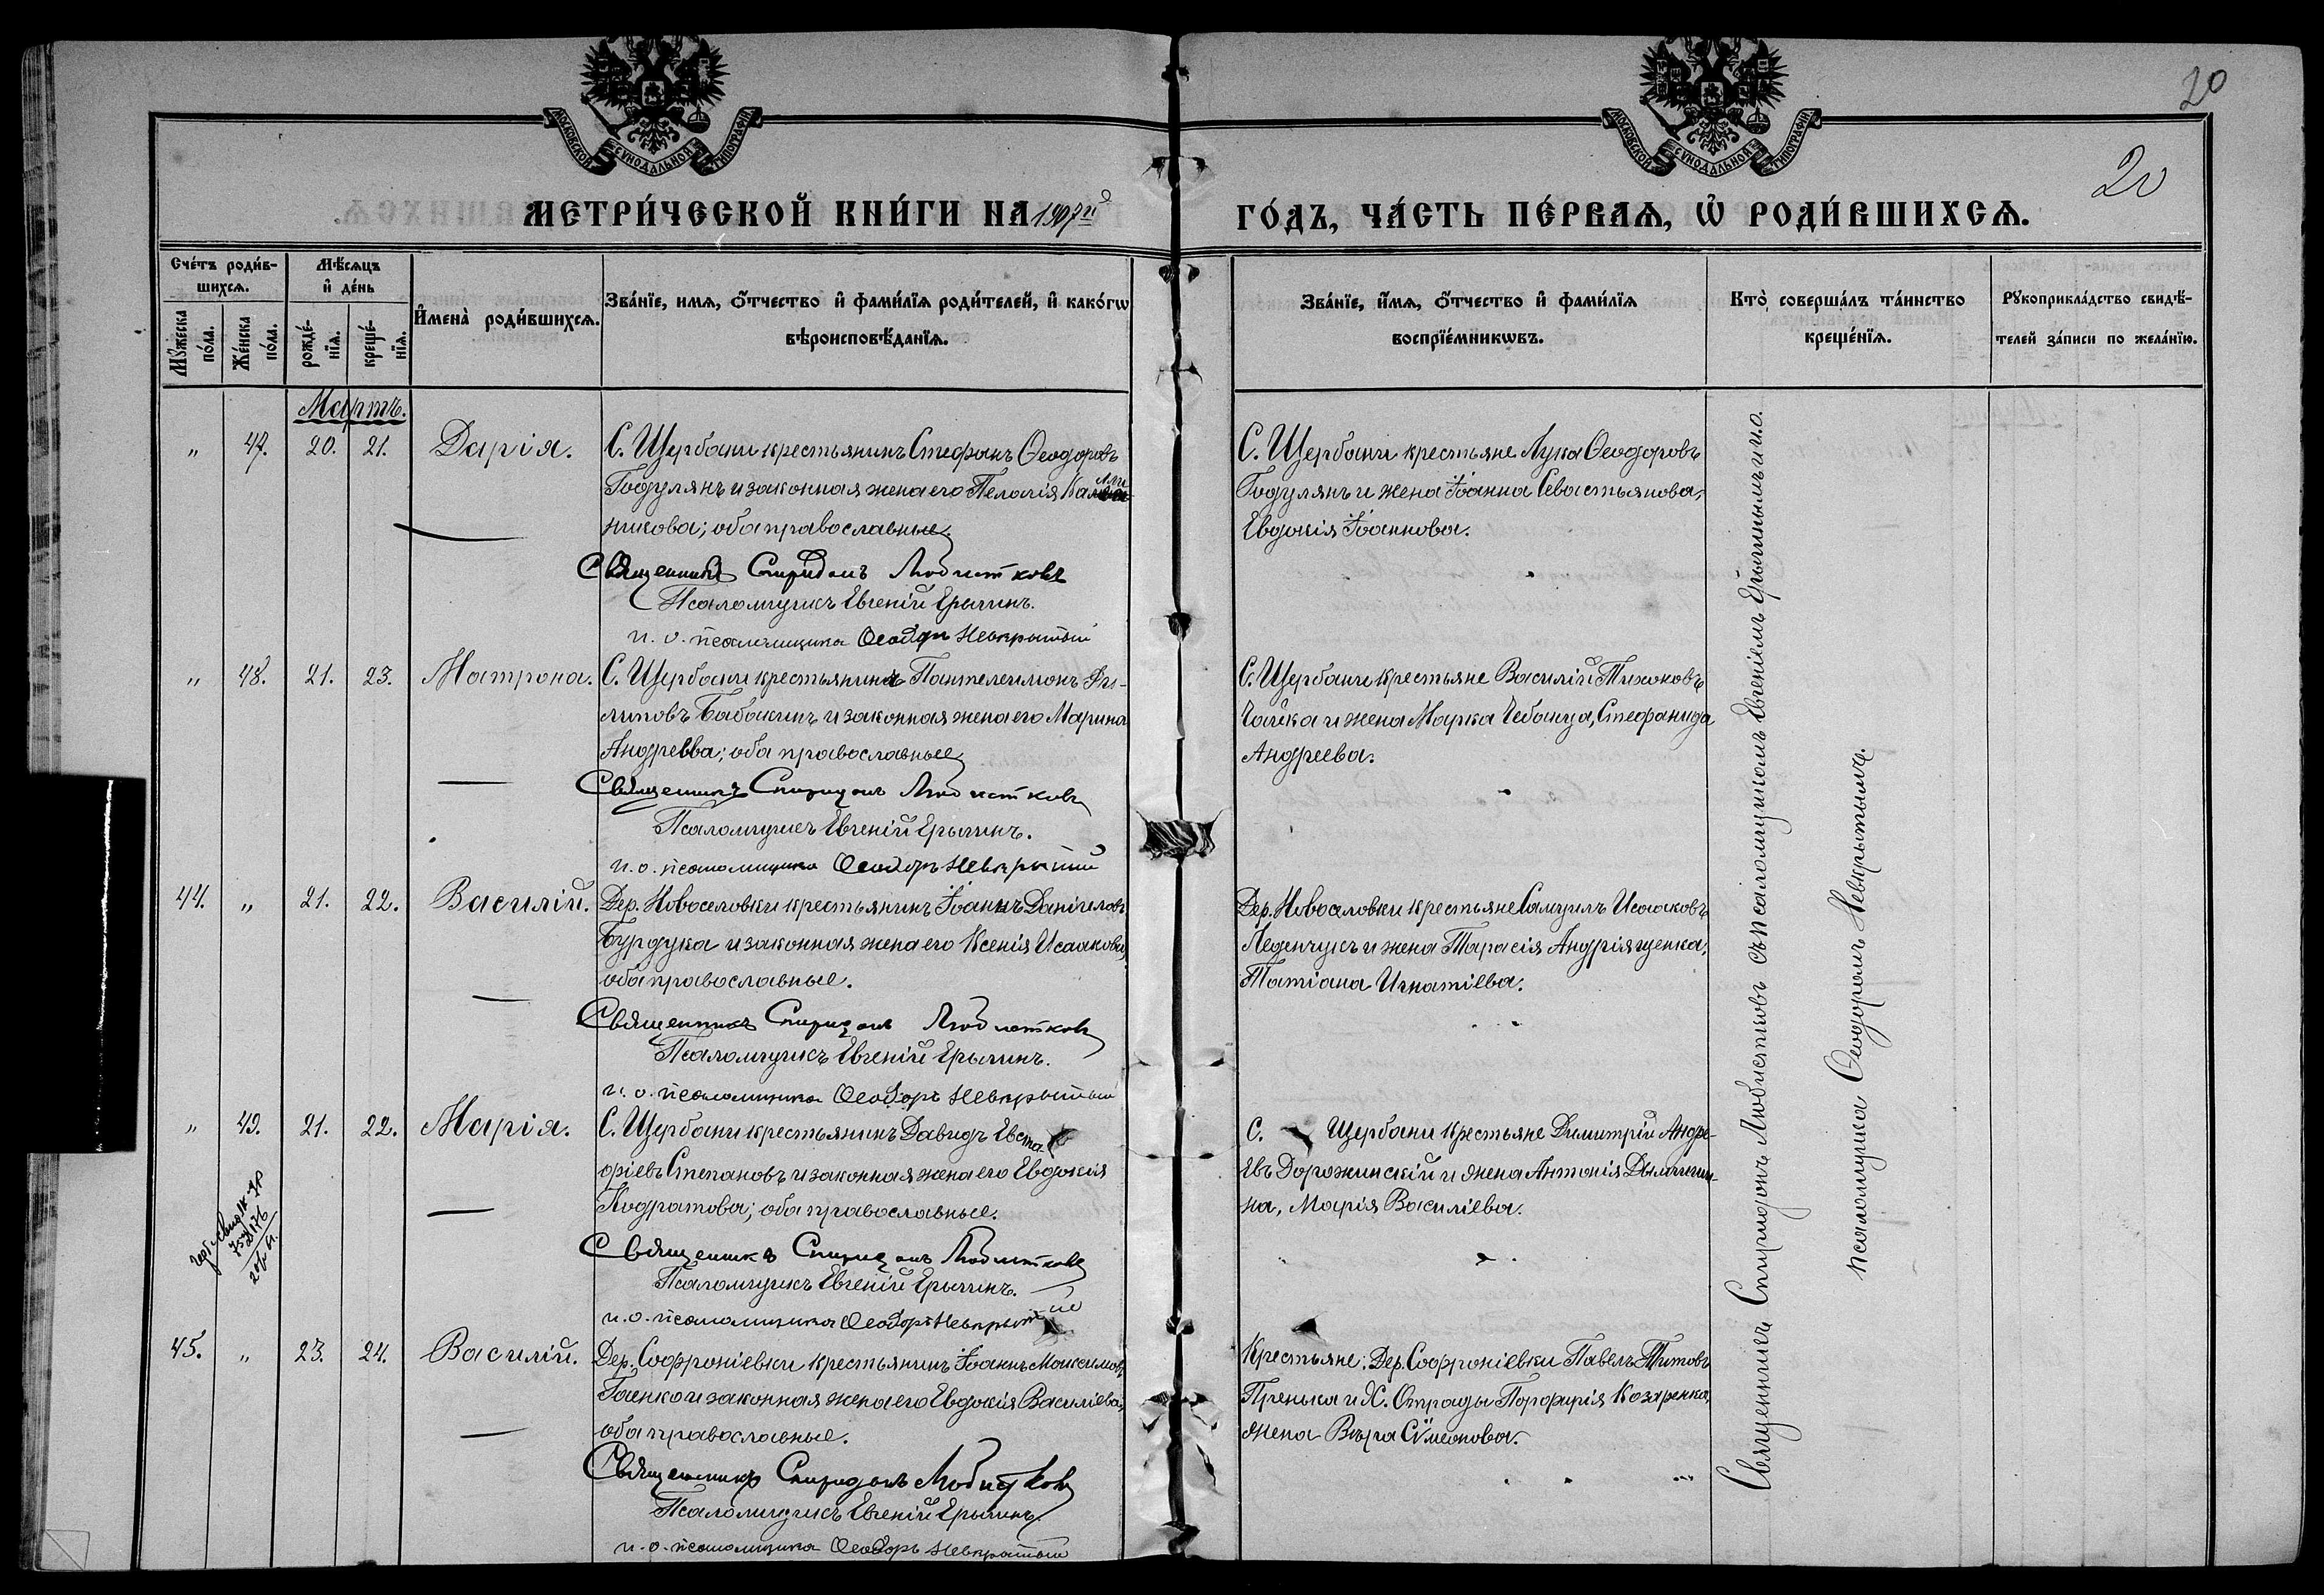 20
20
МОСКОВСКОЙ СѴНОДАЛЬНОЙ ТИПОГРАФІИ
МОСКОВСКОЙ СѴНОДАЛЬНОЙ ТИПОГРАФІИ
МЕТРИ́ЧЕСКОЙ КНИ́ГИ НА 1907й ГО́ДЪ, ЧА́СТЬ ПЕ́РВАѦ, Ѡ҆ РОДИ́ВШИХСѦ.
Сче́тъ роди́в-
шихсѧ.
Мꙋ́жеска по́ла.
Же́нска по́ла.
Мѣ́сѧцъ и҆ де́нь
рожде́-нїѧ.
креще́-нїѧ.
И҆мена̀ роди́вшихсѧ.
Зва́нїе, имѧ, ѻ҆́тчество и҆ фами́лїѧ роди́телей, и҆ како́гѡ
вѣроисповѣ́данїѧ.
Зва́нїе, и҆́мѧ, ѻ҆́тчество и҆ фами́лїѧ
воспрїе́мникѡвъ.
Кто̀ соверша́лъ та́инство
креще́нїѧ.
Рꙋкоприкла́дство свидѣ́-
телей за́писи по жела́нїю.
Мартъ.
„ 47. 20. 21. Дарія.
С. Щербани крестьянинъ Стефанъ Ѳеодоровъ
Годулянъ и законная жена его Пелагія
никова; оба православные.
Священникъ Спиридонъ Любистковъ
Псаломщикъ Евгеній Ерыгинъ.
и. о. псаломщика Ѳеодоръ Невкрытый
С. Щербани крестьяне Лука Ѳеодоровъ
Годулянъ и жена Іоанна Севастьянова,
Евдокія Іоаннова.
„ 48. 21. 23. Матрона.
С. Щербани крестьянинъ Пантелеимонъ Фи-
липовъ Бабакинъ и законная жена его Марина
Андреева; оба православные
Священникъ Спиридонъ Любистковъ
Псаломщикъ Евгеній Ерыгинъ.
и. о. псаломщика Ѳеодоръ Невкрытый
С. Щербани крестьяне Василій Тихоновъ
Чайка и жена Марка Чебанца, Стефанида
Андреева.
44. „ 21. 22. Василій.
Дер. Новоселовки крестьянинъ Іоаннъ Даніиловъ
Бурдука и законная жена его Ксенія Исаакова,
оба православные.
Священникъ Спиридонъ Любистковъ
Псаломщикъ Евгеній Ерыгинъ.
и. о. псаломщика Ѳеодоръ Невкрытый
Дер. Новоселовки крестьяне Самуилъ Исааковъ
Леденчукъ и жена Тарасія Андріященка,
Татіана Игнатіева.
„ 49. 21. 22. Марія.
С. Щербани крестьянинъ Давидъ Евста-
фіевъ Степановъ и законная жена его Евдокія
Кодратова; оба православные.
Священникъ Спиридонъ Любистковъ
Псаломщикъ Евгеній Ерыгинъ.
и. о. псаломщика Ѳеодоръ Невкрытый
С. Щербани крестьяне Димитрій Андре-
евъ Дорожинскій и жена Антонія
на, Марія Василіева.
45. „ 23. 24. Василій.
Дер. Софроніевки крестьянинъ Іоаннъ Максимовъ
Гаенко и законная жена его Евдокія Василіева,
оба православные.
Священникъ Спиридонъ Любистковъ
Псаломщикъ Евгеній Ерыгинъ
и. о. псаломщика Ѳеодоръ Невкрытый
Крестьяне: Дер. Софроніевки Павелъ Титовъ
Пренька и Х. Отрады Порфирія Козаренка,
жена Вѣра Сѵмеонова.
Священникъ Спиридонъ Любистковъ съ псаломщикомъ Евгеніемъ Ерыгинымъ и и. о.
псаломщика Ѳеодоромъ Невкрытымъ.